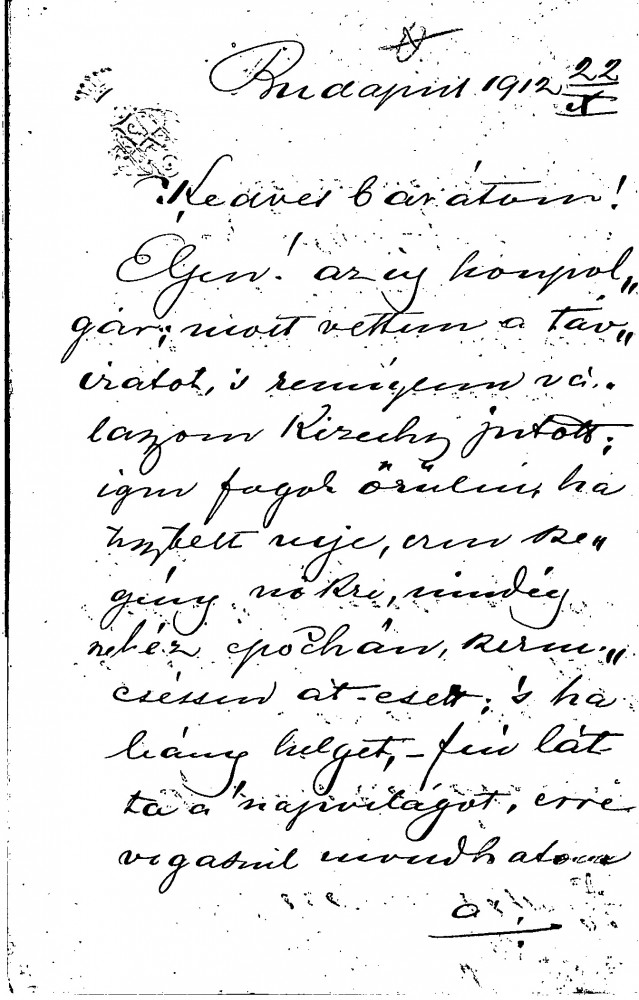 Budapest 1912 22/X
Kedves barátom!
Éljen! az uj honpol„
gár; most vettem a táv„
iratot, 's remélem vá„
laszom jutott;
igen fogok örülni, ha
neje, ezen ke„
gény nőkre, mindég
nehéz epochán, szeren„
csésen át-esett; 's ha
leány helyet, – fiú lát
ta a napvilágot, erre
vigaszul mondhatom
a: